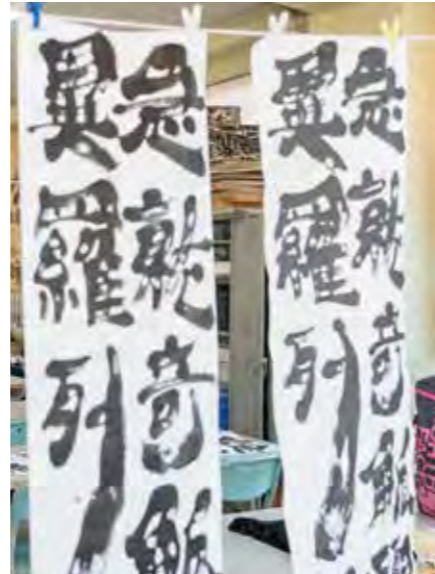 急就奇觚
異羅列
急就奇觚
異羅列